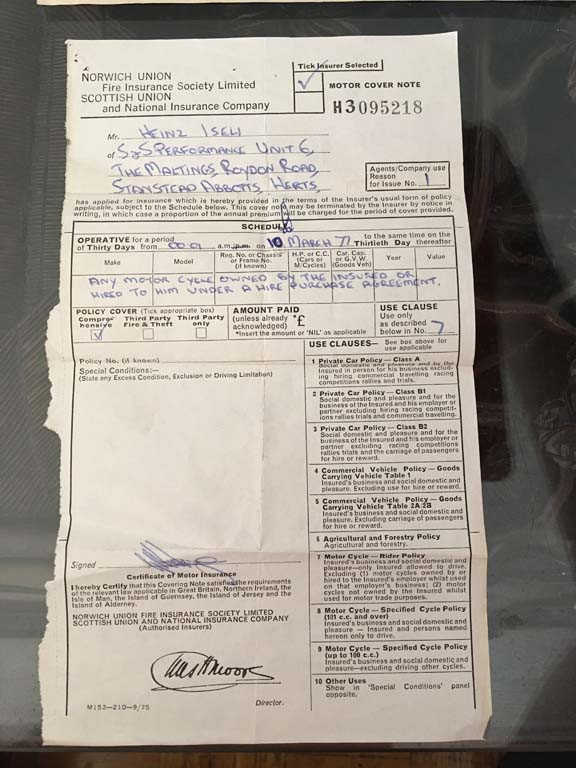 Tick Insurer Selected
NORWICH UNION
Fire Insurance Society Limited
SCOTTISH UNION
and National Insurance Company
MOTOR COVER NOTE
H3095218
Mr. HEINZ ISELI
of S&S PERFORMANCE UNIT 6,
THE MALTINGS, ROYDON ROAD,
STANSTEAD ABBOTTS, HERTS,
Agents/Company use
Reason
for Issue No. 1
has applied for insurance which is hereby provided in the terms of the Insurer's usual form of policy
applicable, subject to the Schedule below. This cover note may be terminated by the Insurer by notice in
writing, in which case a proportion of the annual premium will be charged for the period of cover provided.
SCHEDULE
OPERATIVE for a period
of Thirty Days from 00 01 a.m./p.m. on 10 MARCH 77 to the same time on the Thirtieth Day thereafter
Make
Model
Reg. No. or Chassis
or Frame No.
(if known)
H.P. or C.C.
(Cars or
M.Cycles)
Car. Cap.
or G.V.W.
(Goods Veh)
Year
Value
ANY MOTOR CYCLE OWNED BY THE INSURED OR
HIRED TO HIM UNDER A HIRE PURCHASE AGREEMENT.
POLICY COVER (Tick appropriate box)
Comprehensive
Third Party
Fire & Theft
Third Party
only
AMOUNT PAID
(unless already
acknowledged) *£
*Insert the amount or 'NIL' as applicable
USE CLAUSE
Use only
as described
below in No. 7
Policy No. (if known)
Special Conditions:—
(State any Excess Condition, Exclusion or Driving Limitation)
USE CLAUSES— See box above for
use applicable
1 Private Car Policy – Class A
Social domestic and pleasure and by the
Insured in person for his business excluding
hiring commercial travelling racing
competitions rallies and trials.
2 Private Car Policy – Class B1
Social domestic and pleasure and for the
business of the Insured and his employer or
partner excluding hiring racing competitions
rallies trials and commercial travelling.
3 Private Car Policy – Class B2
Social domestic and pleasure and for the
business of the Insured and his employer or
partner excluding racing competitions
rallies trials and the carriage of passengers
for hire or reward.
4 Commercial Vehicle Policy – Goods
Carrying Vehicle Table 1
Insured's business and social domestic and
pleasure. Excluding use for hire or reward.
5 Commercial Vehicle Policy – Goods
Carrying Vehicle Table 2A/2B
Insured's business and social domestic and
pleasure. Excluding carriage of passengers
for hire or reward.
6 Agricultural and Forestry Policy
Agricultural and forestry.
7 Motor Cycle – Rider Policy
Insured's business and social domestic and
pleasure—only Insured allowed to drive.
Excluding (1) motor cycles owned by or
hired to the Insured's employer whilst used
on that employer's business; (2) motor
cycles not owned by the Insured whilst
used for motor trade purposes.
8 Motor Cycle – Specified Cycle Policy
(101 c.c. and over)
Insured's business and social domestic and
pleasure — Insured and persons named
hereon only to drive.
9 Motor Cycle – Specified Cycle Policy
(up to 100 c.c.)
Insured's business and social domestic and
pleasure—excluding driving other cycles.
10 Other Uses
Show in 'Special Conditions' panel
opposite.
Signed
Certificate of Motor Insurance
I hereby Certify that this Covering Note satisfies the requirements
of the relevant law applicable in Great Britain, Northern Ireland, the
Isle of Man, the Island of Guernsey, the Island of Jersey and the
Island of Alderney.
NORWICH UNION FIRE INSURANCE SOCIETY LIMITED
SCOTTISH UNION AND NATIONAL INSURANCE COMPANY
(Authorised Insurers)
Director.
M152—210—9/75